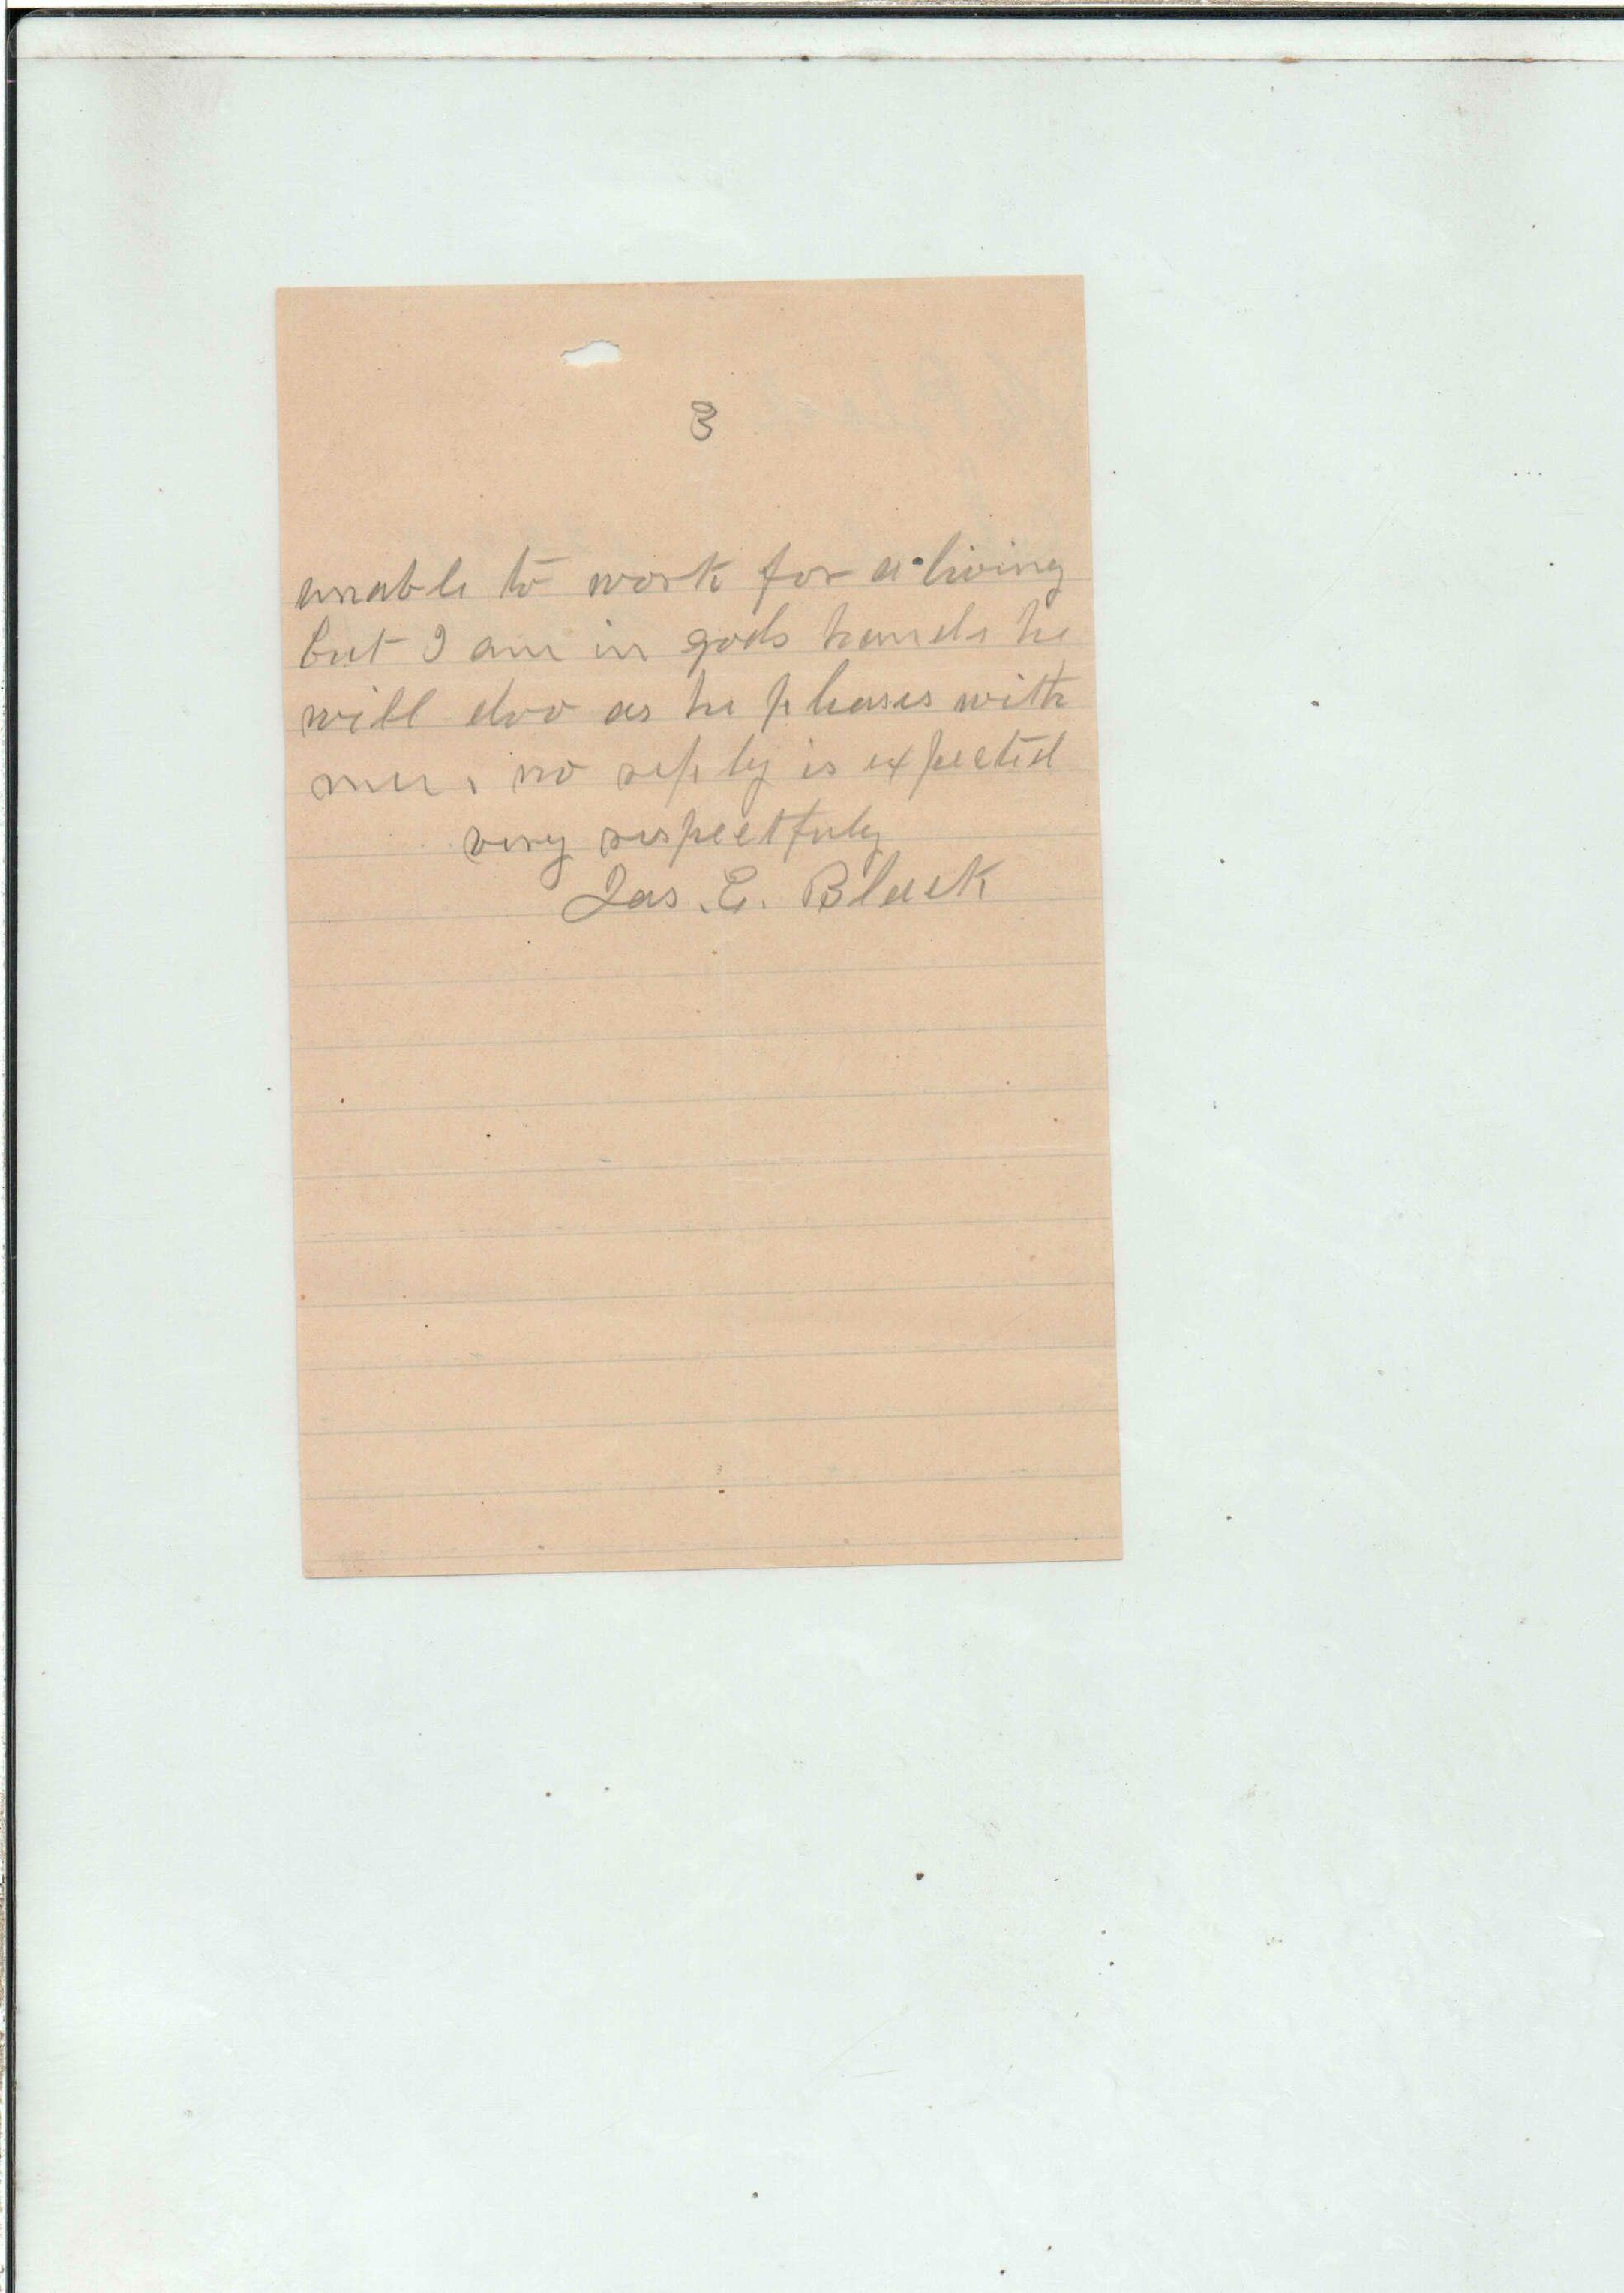 3
unable to work for a living
but I am in gods hands he
will doo as he pleases with
mee. no reply is expected
very respectfuly
Jas. E. Black